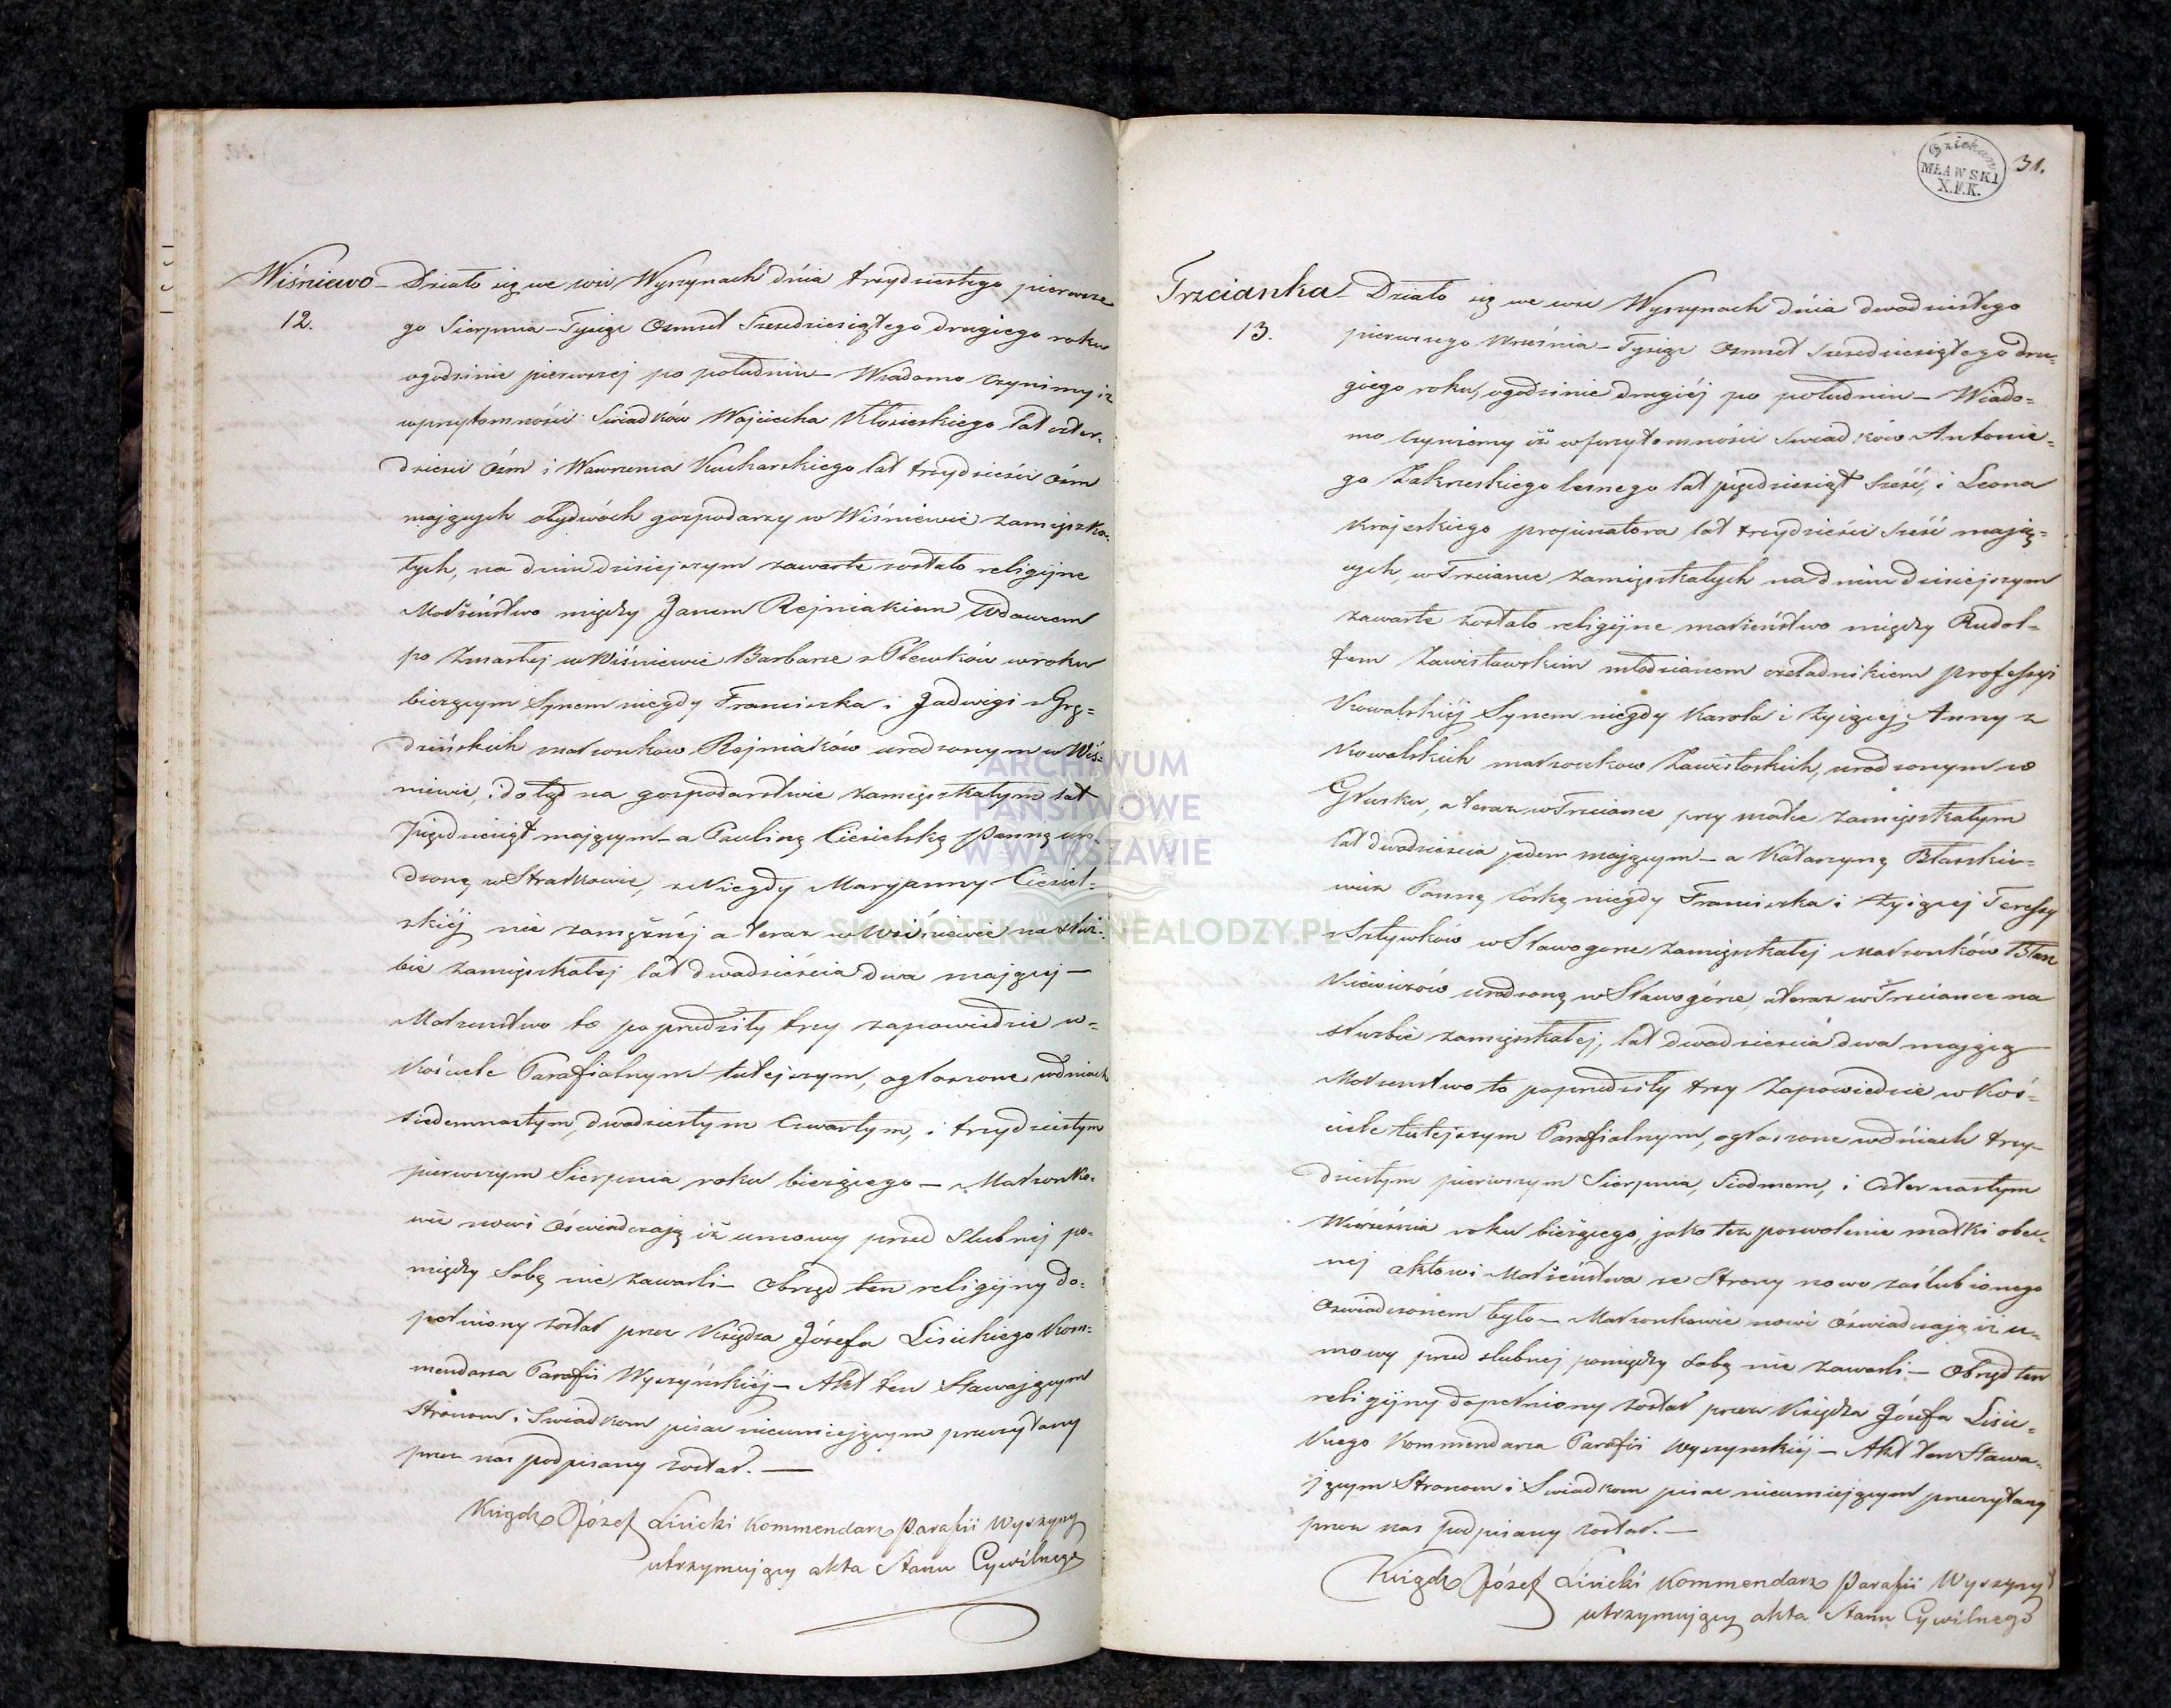 Wiśniewo
12.
Działo się we wsi Wyszynach dnia trzydziestego pierwsze
go Sierpnia – Tysiąc Ośmset Sześdziesiątego drugiego roku
ogodzinie pierwszej po południu – Wiadomo czynimy iż
wprzytomności Swiadków Wojciecha Kłosieskiego lat czter-
dzieści Ośm i Wawrzeńca Kucharskiego lat trzydzieści Ośm
mających obydwóch gospodarzy w Wiśniewie zamięszka-
łych, na dniu dzisiejszym zawarte zostało religijne
Małżeństwo między Janem Rejniakiem Wdowcem
po Zmarłej w Wiśniewie Barbarze z Plewków w roku
bieżącym Synem niegdy Franciszka i Jadwigi z Grę=
dzińskich małżonków Rejniaków urodzonym w Wiś=
niewie, i dotąd na gospodarstwie zamięszkałym lat
Pięćdziesiąt mającym – a Pauliną Ciesielską Panną uro
dzoną w Strzałkowie, z Niegdy Maryanny Ciesiel=
skiéj nie zamężnéj a teraz w Wiśniewie na służ=
bie zamięszkałej lat dwadzieścia dwa mającej –
Małżeństwo to poprzedziły trzy zapowiedzie w=
Kościele Parafialnym tutejszym, ogłoszone wdniach
siedemnastym, dwudziestym Czwartym, i trzydziestym
pierwszym Sierpnia roku bieżącego – Małżonko-
wie nowi Oświadczają iż umowy przed Slubnej po-
między Sobą nie zawarli – Obrzęd ten religijny do=
pełniony został przez Księdza Józefa Lisickiego Kom=
mendarza Parafii Wyszyńskiéj – Akt ten Stawającym
Stronom i Swiadkom pisać nieumiejącym przeczytany
przez nas podpisany został. –
Ksiądz Józef Lisicki Kommendarz Parafii Wyszyny
utrzymujący akta Stanu Cywilnego
Dziekan
MŁAWSKI
X.F.K.
31.
Trzcianka
13.
Działo się we wsi Wyszynach dnia dwudziestego
pierwszego Września – Tysiąc Ośmset Sześdziesiątego dru-
giego roku, ogodzinie drugiéj po południu – Wiado=
mo czyniemy iż wprzytomności Swiadków Antonie=
go Zakrzeskiego leśnego lat pięćdziesiąt Sześć, i Leona
Krajeskiego propinatora lat trzydzieści Sześć mają=
cych, w Trzciance zamięszkałych na dniu dzisiejszym
zawarte zostało religijne małżeństwo między Rudol=
fem Zawisławskim młodzianem czeladnikiem professyi
Kowalskiéj, Synem niegdy Karola i żyjącéj Anny z
Kowalskich małżonków Zawisłoskich, urodzonym w
Głusku, a teraz w Trzciance przy matce zamięszkałym
lat dwadzieścia jeden mającym – a Katarzyną Błaszkie=
wicz Panną córką niegdy Franciszka i żyjącej Teressy
z Sztywków w Sławogórze zamięszkałej Małżonków Błasz
Kiewiczów urodzoną w Sławogórze, a teraz w Trzciance na
służbie zamięszkałej, lat dwadzieścia dwa mającą
Małżeństwo to poprzedziły trzy Zapowiedzie w Koś-
ciele tutejszym Parafialnym, ogłoszone wdniach trzy-
dziestym pierwszym Sierpnia, Siódmem, i Czternastym
Września roku bieżącego, jako też pozwolenie matki obec-
nej aktowi Małżeństwa ze Strony nowo zaślubionego
Oświadczonem było – Małżonkowie nowi Oświadczają iż u=
mowy przed slubnej pomiędzy sobą nie zawarli – Obrzęd ten
religijny dopełniony został przez Księdza Józefa Lisic-
kiego Kommendarza Parafii Wyszynskiéj – Akt ten Stawa-
jącym Stronom i Swiadkom pisać nieumiejącym przeczytany
przez nas podpisany został. –
Ksiądz Józef Lisicki Kommendarz Parafii Wyszyny
utrzymujący akta Stanu Cywilnego
ARCHIWUM
PAŃSTWOWE
W WARSZAWIE
SKANOTEKA.GENEALODZY.PL